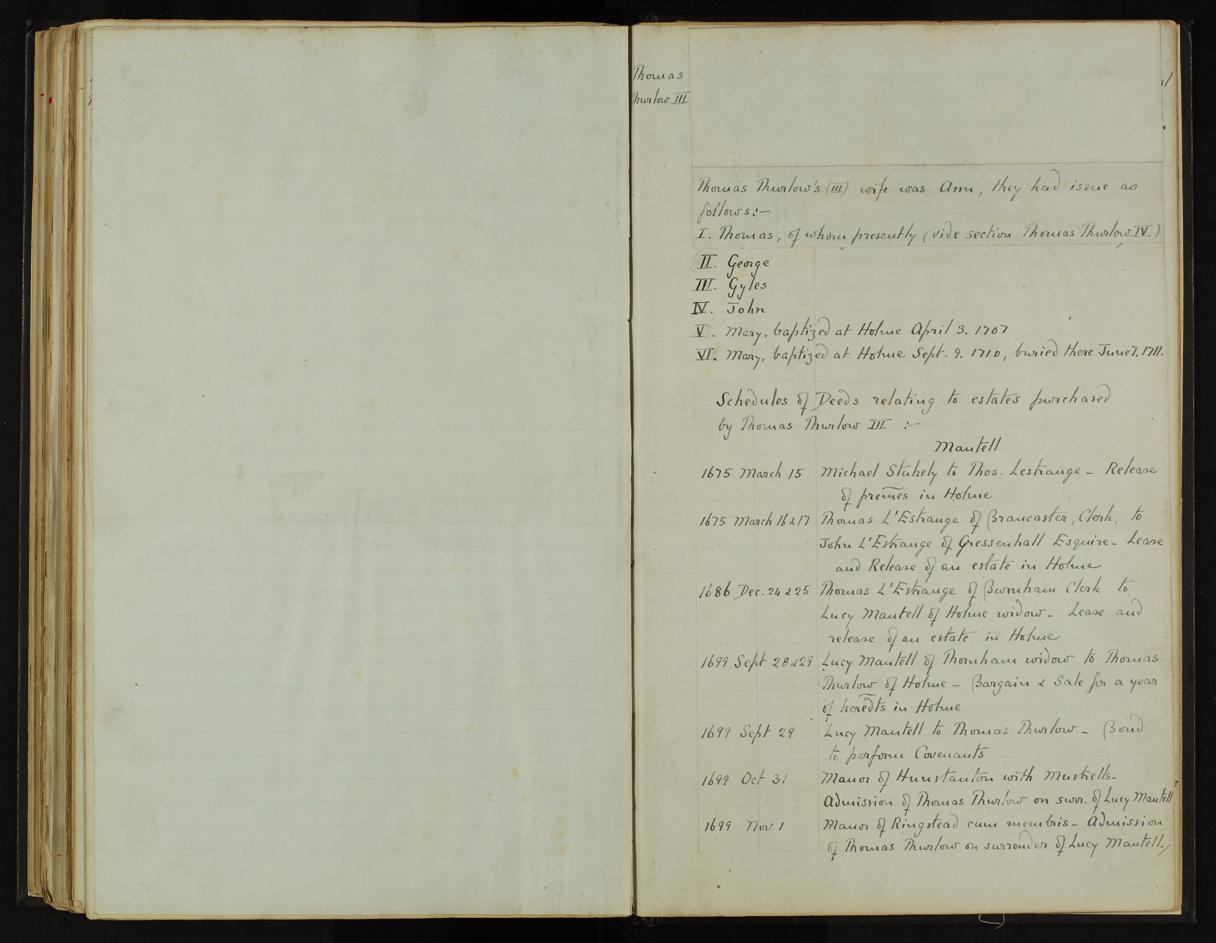 Thomas
Thurlow III
Thomas Thurlow's (III) wife was Ann, they had issue as
follows:-
I. Thomas, of whom presently (vide section Thomas Thurlow IV)
II. George
III. Gyles
IV. John
V. Mary, baptized at Holme April 3. 1707
VI. Mary, baptized at Holme Sept. 9. 1710, buried there June 7. 1711.
Schedules of Deeds relating to estates purchased
by Thomas Thurlow III :-
Mantell
1675 March 15 Michael Stukely to Thos. Lestrange - Release
of prem̃es in Holme
1675 March 16 & 17 Thomas L'Estrange of Brancaster, Clerk, to
John L'Estrange of Gressenhall Esquire - Lease
and Release of an estate in Holme
1686 Dec. 24 & 25 Thomas L'Estrange of Burnham Clerk to
Lucy Mantell of Holme widow - Lease and
release of an estate in Holme
1699 Sept 28 & 29 Lucy Mantell of Thornham widow to Thomas
Thurlow of Holme - Bargain & Sale for a year
of hered̃ts in Holme
1699 Sept 29 Lucy Mantell to Thomas Thurlow - Bond
to perform Covenants
1699 Oct 31 Manor of Hunstanton with Mustrells -
Admission of Thomas Thurlow on surr. of Lucy Mantell
1699 Nov 1 Manor of Ringstead cum membris - Admission
of Thomas Thurlow on surrender of Lucy Mantell.